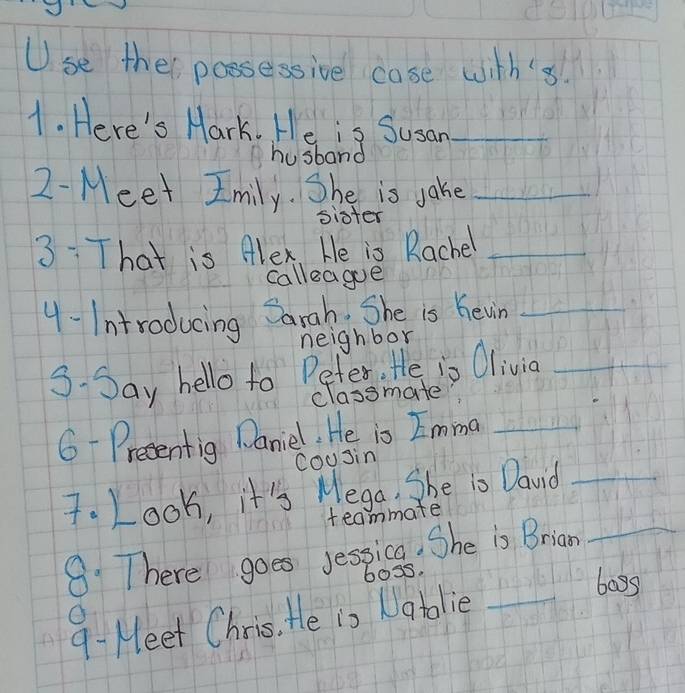 Use the possessive case with 's.
1. Here's Mark. He is Susan______
husband
2- Meet Emily. She is jake______
sister
3- That is Alex. He is Rachel______
calleague
4- Introducing Sarah. She is Kevin______
neighbor
5. Say hello to Peter. He is Olivia______
classmate
6- Presentig Daniel. He is Emma______
cousin
7. Look, it's Mega. She is David______
teammate
8. There goes jessica. She is Brian______
boss.
9- Meet Chris. He is Natalie______ boss